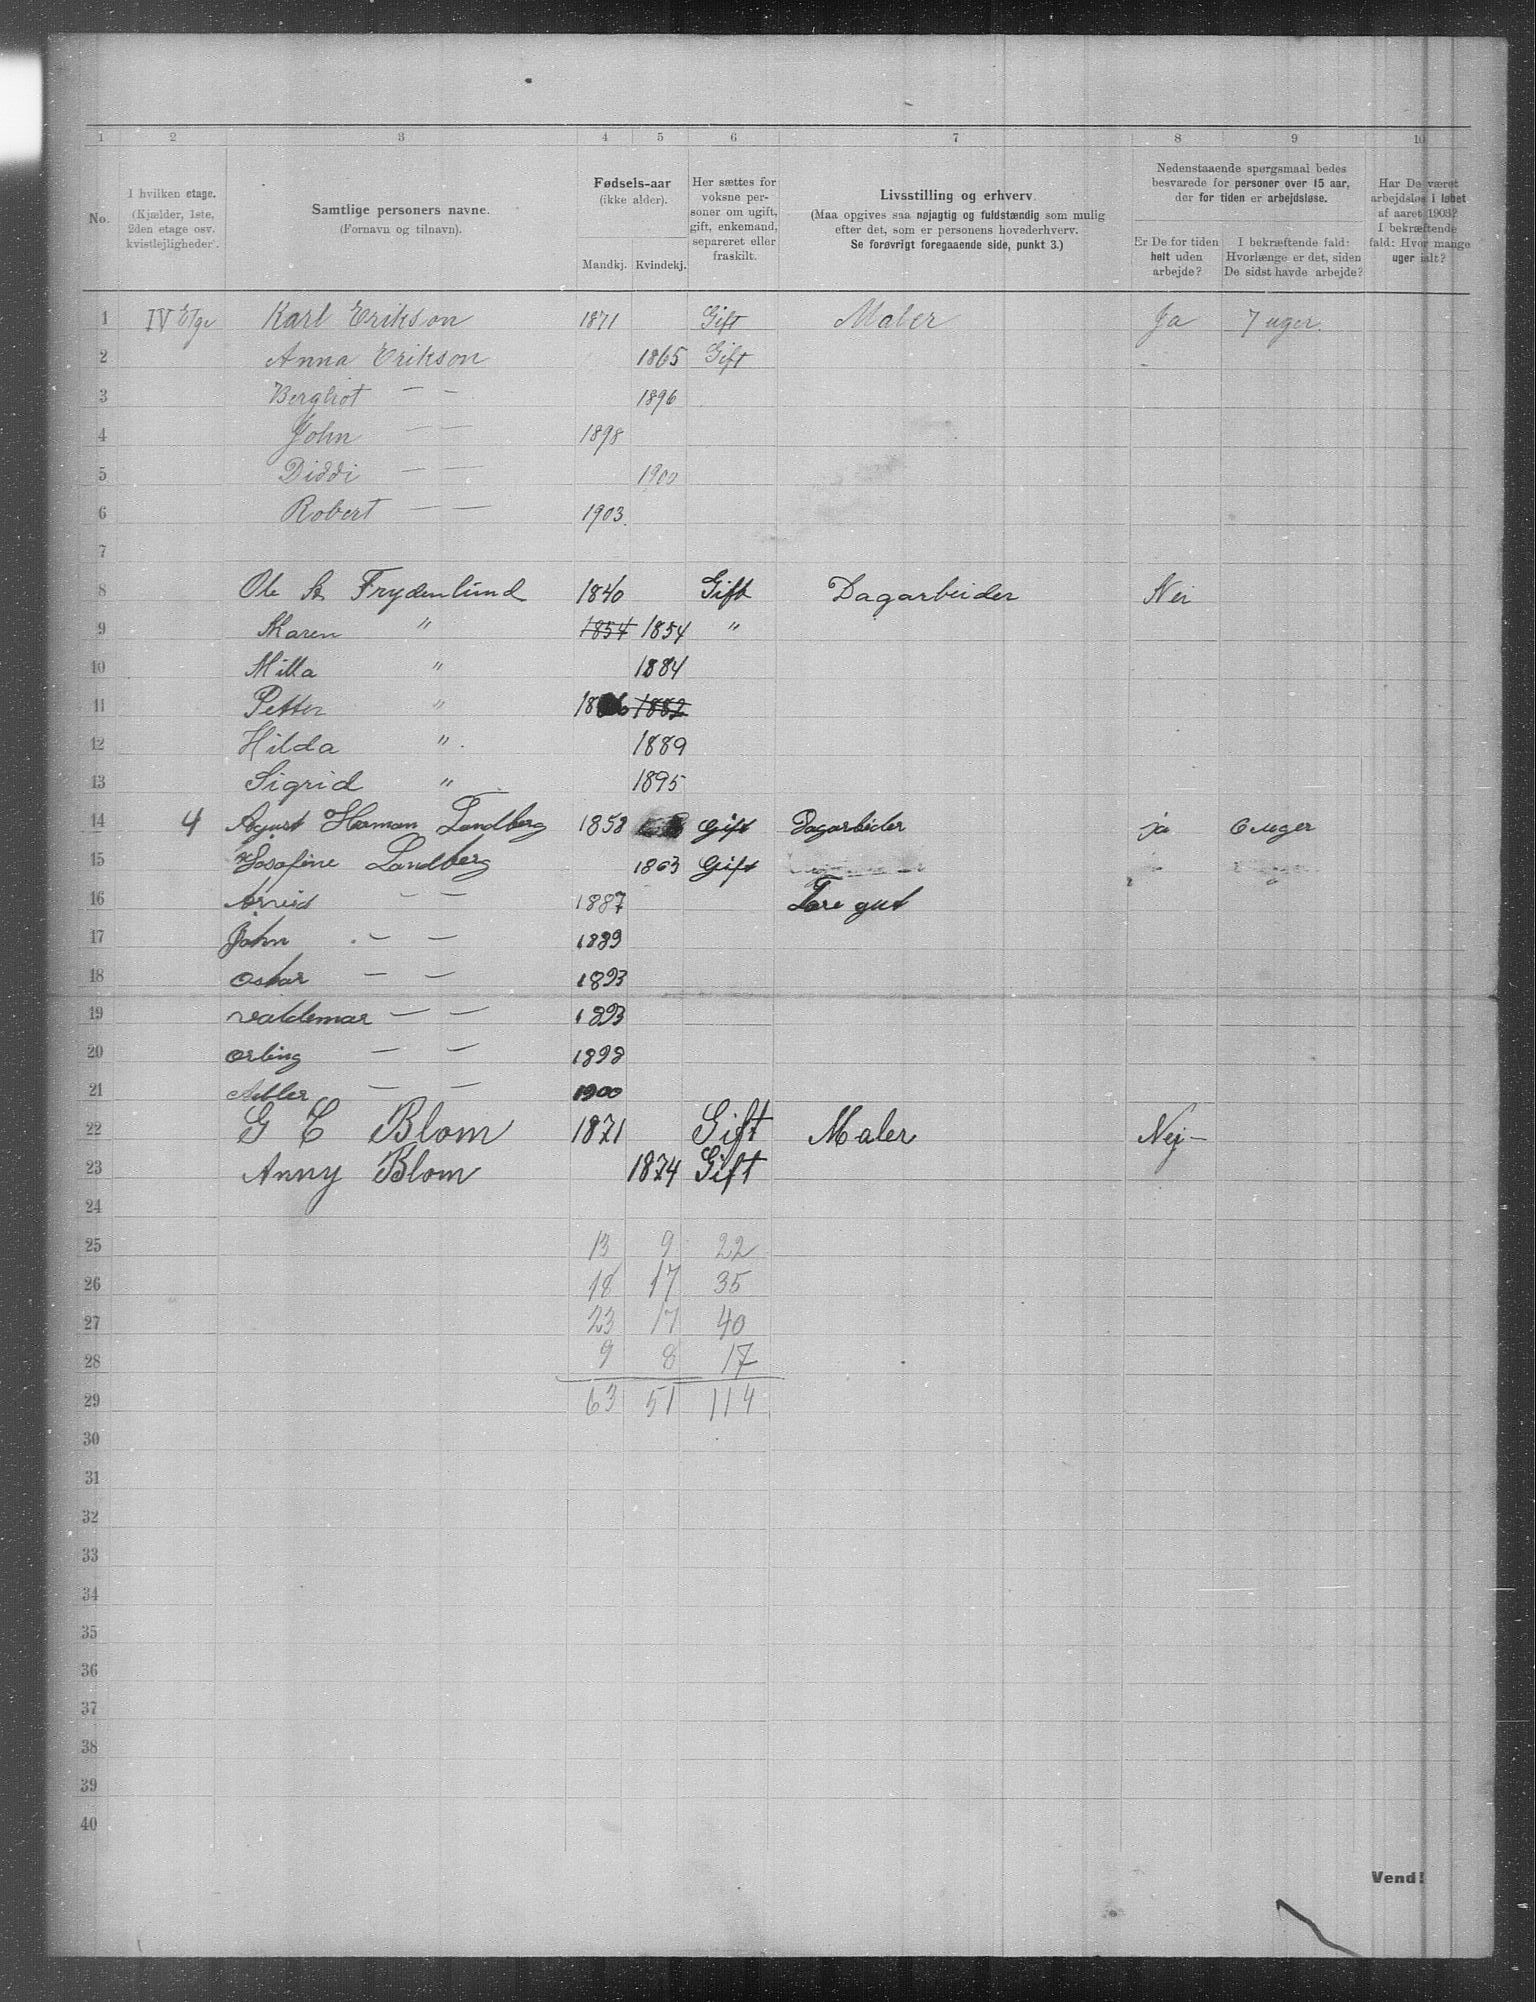 1 2 3 4 5 6 7 8 9 10
No.
I hvilken etage.
(Kjælder, 1ste,
2den etage osv.
kvistlejligheder).
Samtlige personers navne.
(Fornavn og tilnavn).
Fødsels-aar
(ikke alder).
Mandkj. Kvindekj.
Her sættes for
voksne per-
soner om ugift,
gift, enkemand,
separeret eller
fraskilt.
Livsstilling og erhverv
(Maa opgives saa nøjagtig og fuldstændig som mulig
efter det, som er personens hovederhverv.
Se forøvrigt foregaaende side, punkt 3.)
Nedenstaaende spørgsmaal bedes
besvarede for personer over 15 aar,
der for tiden er arbejdsløse.
Er De for tiden
helt uden
arbejde?
I bekræftende fald:
Hvorlænge er det, siden
De sidst havde arbejde?
Har De været
arbejdsløs i løbet
af aaret 1903?
I bekræftende
fald: Hvor mange
uger ialt?
1 IV Etge Karl Erikson 1871 Gift Maler Ja 7 uger.
2 Anna Erikson 1865 Gift
3 Bergliot — — 1896
4 John — — 1898
5 Diddi — — 1900
6 Robert — — 1903.
7
8 Ole Frydenlund 1840 Gift Dagarbeider Nei
9 Maren " 1854 1854 "
10 Milla " 1884
11 Petter " 1882
12 Hilda " 1889
13 Sigrid " 1895
14 4 Agust Herman Landberg 1858 Gift Dagarbeider ja 6 uger
15 Josefine Landberg 1863 Gift
16 Arvid — — 1887 Løre gut
17 John — — 1889
18 oskar — — 1893
19 valdemar — — 1893
20 erling — — 1898
21 — — 1900
22 G C Blom 1871 Gift Maler Nej —
23 Anny Blom 1874 Gift
24
25 13 9 22
26 18 17 35
27 23 17 40
28 9 8 17
29 63 51 114
30
31
32
33
34
35
36
37
38
39
40
Vend!